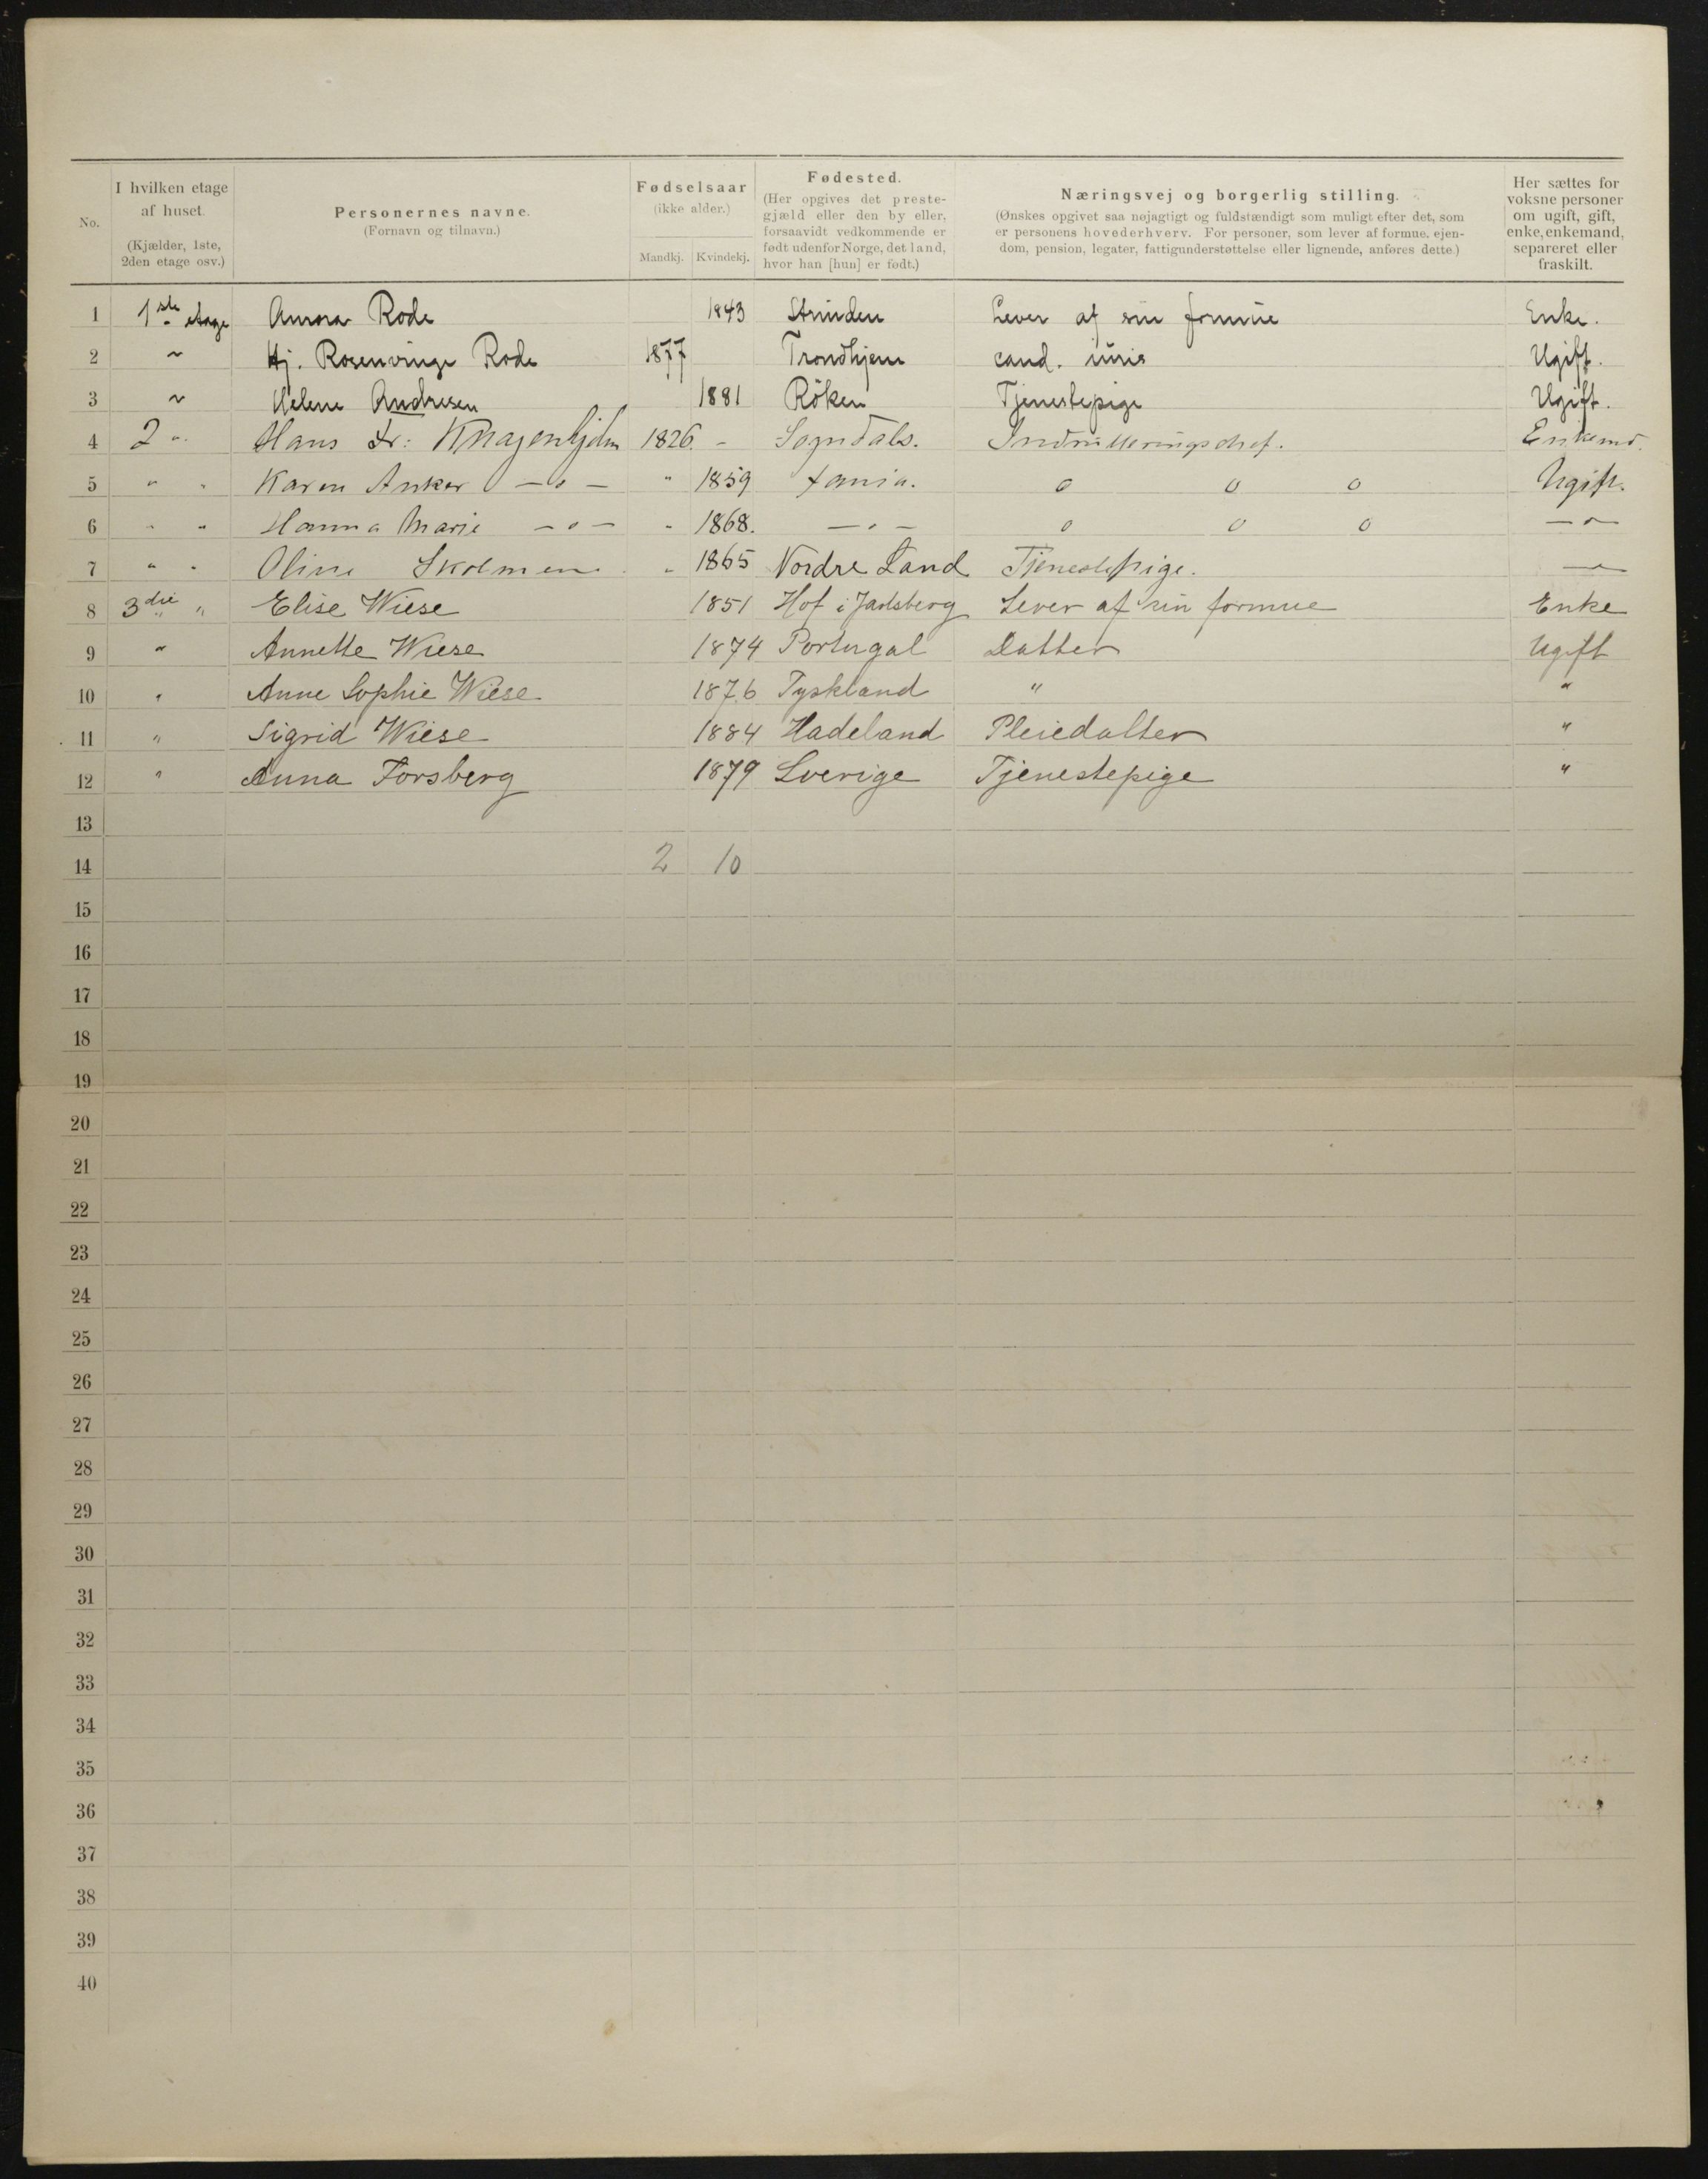 No.
I hvilken etage af huset.
(Kjælder, 1ste, 2den etage osv.)
Personernes navne.
(Fornavn og tilnavn.)
Fødselsaar
(ikke alder.)
Mandkj. Kvindekj.
Fødested.
(Her opgives det prestegjæld eller den by eller, forsaavidt vedkommende er født udenfor Norge, det land, hvor han [hun] er født.)
Næringsvej og borgerlig stilling.
(Ønskes opgivet saa nøjagtigt og fuldstændigt som muligt efter det, som er personens hovederhverv. For personer, som lever af formue, ejendom, pension, legater, fattigunderstøttelse eller lignende, anføres dette.)
Her sættes for voksne personer om ugift, gift, enke, enkemand, separeret eller fraskilt.
1 1ste etage Aurora Rode 1843 Strinden Lever af sin formue Enke.
2 " Hj. Rosenvinge Rode 1877 Trondhjem cand. juris Ugift.
3 " Helene Andresen 1881 Röken Tjenestepige Ugift.
4 2 " Hans Fr: 1826. - Sogndals. Indrulleringschef. Enkemd.
5 " " Karen Anker — " — " 1859 Xania. o o o Ugift.
6 " " Hanna Marie — " — " 1868. — " — o o o — " —
7 " " Oline Skolmen " 1865 Nordre Land Tjenestepige. — " —
8 3die " Elise Wiese 1851 Hof i Jarlsberg Lever af sin formue Enke
9 " Annette Wiese 1874 Portugal Datter Ugift
10 " Anne Sophie Wiese 1876 Tyskland " "
11 " Sigrid Wiese 1884 Hadeland Pleiedatter "
12 " Anna Forsberg 1879 Sverige Tjenestepige "
13
14 2 10
15
16
17
18
19
20
21
22
23
24
25
26
27
28
29
30
31
32
33
34
35
36
37
38
39
40